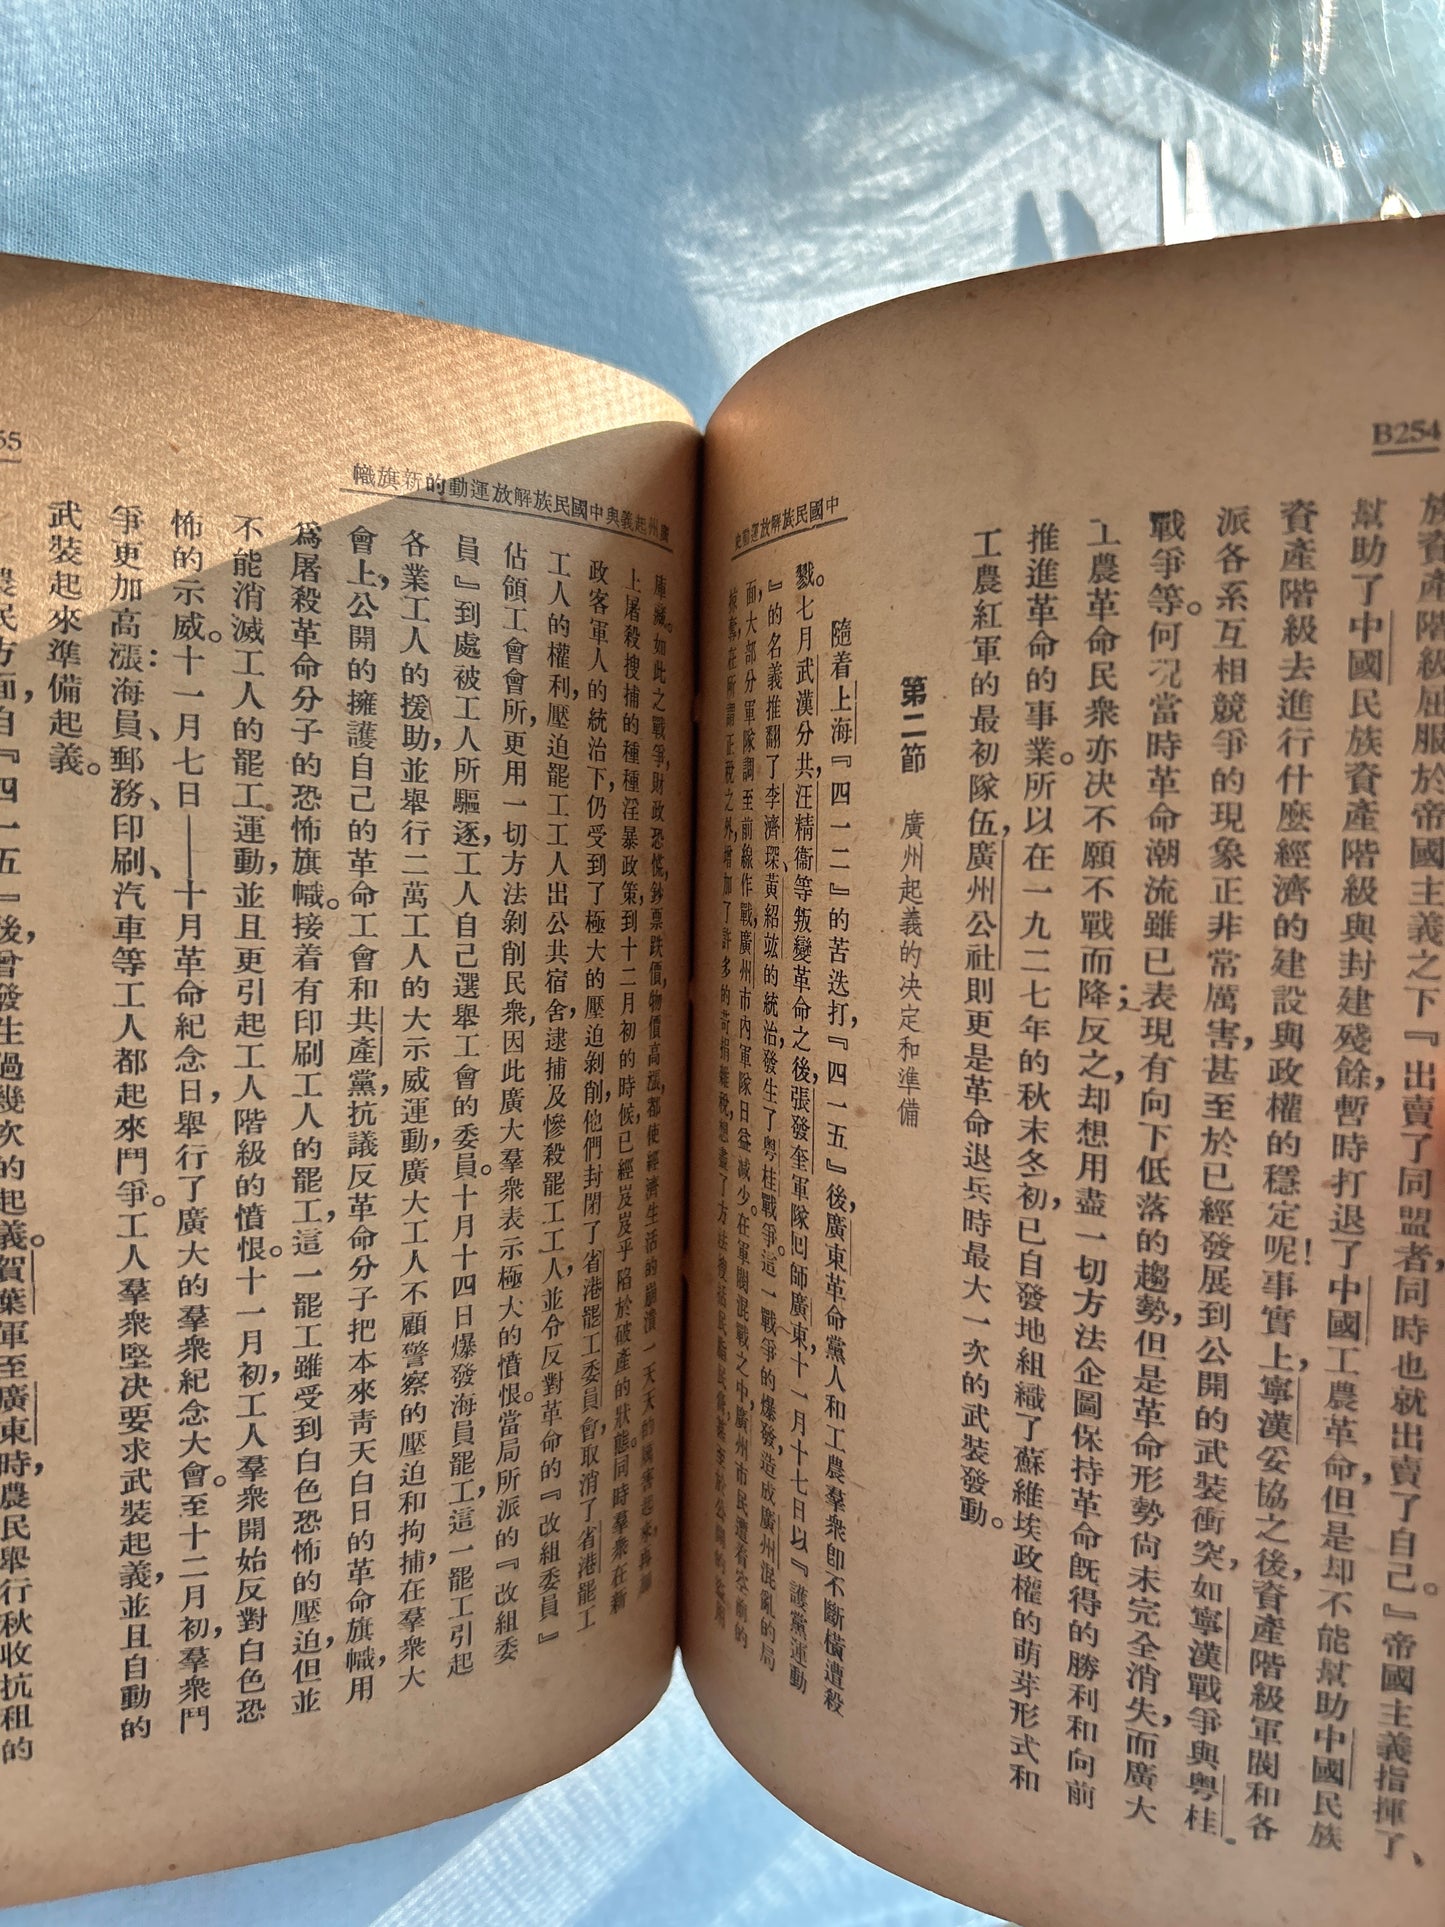 B254
中國民族解放運動史
族資產階級屈服於帝國主義之下『出賣了同盟者,同時也就出賣了自己。』帝國主義指揮了、
幫助了中國民族資產階級與封建殘餘,暫時打退了中國工農革命,但是却不能幫助中國民族
資產階級去進行什麼經濟的建設與政權的穩定呢!事實上,寧漢妥協之後,資產階級軍閥和各
派各系互相競爭的現象正非常厲害,甚至於已經發展到公開的武裝衝突,如寧漢戰爭與粤桂
戰爭等。何况當時革命潮流雖已表現有向下低落的趨勢,但是革命形勢尙未完全消失,而廣大
工農革命民衆亦决不願不戰而降;反之,却想用盡一切方法企圖保持革命旣得的勝利和向前
推進革命的事業。所以在一九二七年的秋末冬初,已自發地組織了蘇維埃政權的萌芽形式和
工農紅軍的最初隊伍,廣州公社則更是革命退兵時最大一次的武裝發動。
第二節 廣州起義的决定和準備
隨着上海『四一二』的苦迭打,『四一五』後,廣東革命黨人和工農羣衆卽不斷橫遭殺
戮。七月武漢分共,汪精衞等叛變革命之後,張發奎軍隊囘師廣東,十一月十七日以『護黨運動
』的名義推翻了李濟琛、黃紹竑的統治,發生了粤桂戰爭。這一戰爭的爆發,造成廣州混亂的局
面,大部分軍隊調至前線作戰,廣州市內軍隊日益減少。在軍閥混戰之中,廣州市民遭着空前的
掠奪,在所謂正稅之外,增加了許多的苛捐雜稅,想盡了方法搜括民脂民膏,甚至於公開的
55
廣州起義與中國民族解放運動的新旗幟
庫藏。如此之戰爭,財政恐慌,鈔票跌價,物價高漲,都使經濟生活的崩潰一天天的厲害起來,再加
上屠殺搜捕的種種淫暴政策,到十二月初的時候,已經岌岌乎陷於破產的狀態。同時羣衆在新
政客軍人的統治下,仍受到了極大的壓迫剝削,他們封閉了省港罷工委員會,取消了省港罷工
工人的權利,壓迫罷工工人出公共宿舍,逮捕及慘殺罷工工人,並令反對革命的『改組委員』
佔領工會會所,更用一切方法剝削民衆,因此廣大羣衆表示極大的憤恨。當局所派的『改組委
員』到處被工人所驅逐,工人自己選舉工會的委員。十月十四日爆發海員罷工,這一罷工引起
各業工人的援助,並舉行二萬工人的大示威運動,廣大工人不顧警察的壓迫和拘捕,在羣衆大
會上,公開的擁護自己的革命工會和共產黨,抗議反革命分子把本來靑天白日的革命旗幟,用
爲屠殺革命分子的恐怖旗幟。接着有印刷工人的罷工,這一罷工雖受到白色恐怖的壓迫,但並
不能消滅工人的罷工運動,並且更引起工人階級的憤恨。十一月初,工人羣衆開始反對白色恐
怖的示威。十一月七日——十月革命紀念日,舉行了廣大的羣衆紀念大會。至十二月初,羣衆鬥
爭更加高漲:海員、郵務、印刷、汽車等工人都起來鬥爭。工人羣衆堅决要求武裝起義,並且自動的
武裝起來準備起義。
農民方面,自『四一五』後,曾發生過幾次的起義。賀葉軍至廣東時,農民舉行秋收抗租的